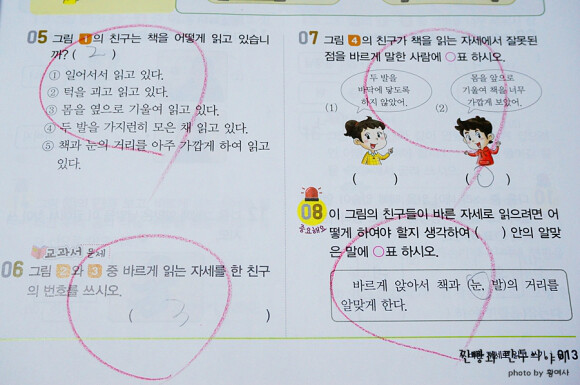 05 그림 1의 친구는 책을 어떻게 읽고 있습니
까? ( 2 )
① 일어서서 읽고 있다.
② 턱을 괴고 읽고 있다.
③ 몸을 옆으로 기울여 읽고 있다.
④ 두 발을 가지런히 모은 채 읽고 있다.
⑤ 책과 눈의 거리를 아주 가깝게 하여 읽고
있다.
교과서 문제
06 그림 2와 3 중 바르게 읽는 자세를 한 친구
의 번호를 쓰시오.
( 3 )
07 그림 4의 친구가 책을 읽는 자세에서 잘못된
점을 바르게 말한 사람에 ○표 하시오.
(1)
두 발을
바닥에 닿도록
하지 않았어.
(2)
몸을 앞으로
기울여 책을 너무
가깝게 보았어.
( ) ( ○ )
중요해요
08 이 그림의 친구들이 바른 자세로 읽으려면 어
떻게 하여야 할지 생각하여 ( ) 안의 알맞
은 말에 ○표 하시오.
바르게 앉아서 책과 (눈, 발)의 거리를
알맞게 한다.
013
photo by 황여사